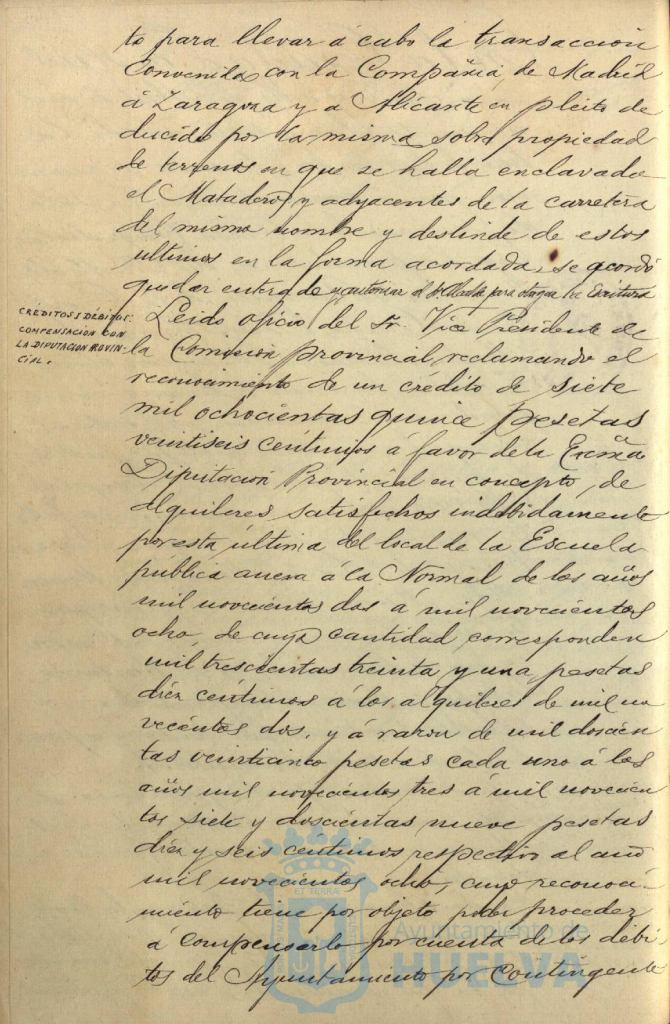 to para llevar á cabo la transaccion
convenida con la Compañia de Madrid
á Zaragoza y a Alicante en pleito de
ducido por la misma sobre propiedad
de terrenos en que se halla enclavado
el Matadero y adyacentes de la carretera
del mismo nombre y deslinde de estos
ultimos en la forma acordada, se acordó
quedar enterado y autorizar al Sr. Alcalde para otorgar la Escritura
CRÉDITOS Y DÉBITOS:
COMPENSACION CON
LA DIPUTACION PROVIN-
CIAL.
Leido oficio del Sr. Vice Presidente de
la Comision provincial, reclamando el
reconocimiento de un crédito de siete
mil ochocientas quince pesetas
veintiseis centimos á favor de la Excma
Diputacion Provincial en concepto, de
alquileres satisfechos indebidamente
por esta última del local de la Escuela
publica anexa á la Normal de los años
mil novecientos dos á mil novecientos
ocho, de cuya cantidad corresponden
mil trescientas treinta y una pesetas
diez centimos á los alquileres de mil no
vecientos dos, y á razon de mil doscien
tas veinticinco pesetas cada uno á los
años mil novecientos tres á mil novecien
tos siete y doscientas nueve pesetas
diez y seis centimos respectivo al año
mil novecientos ocho, cuyo reconoci-
miento tiene por objeto poder proceder
á compensarlo por cuenta de los débi-
tos del Ayuntamiento por Contingente
Ayuntamiento de
HUELVA